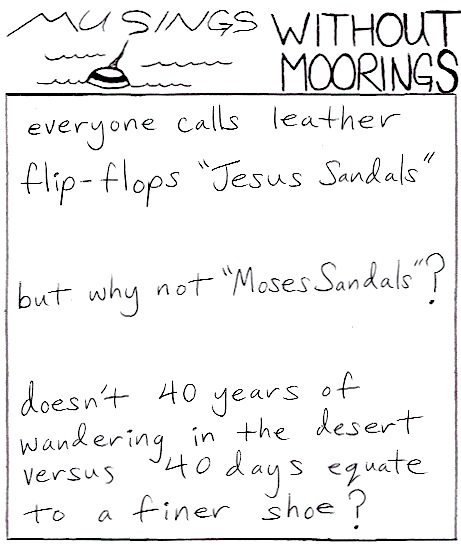 MUSINGS WITHOUT
MOORINGS
everyone calls leather
flip-flops "Jesus Sandals"
but why not "Moses Sandals"?
doesn't 40 years of
wandering in the desert
versus 40 days equate
to a finer shoe?